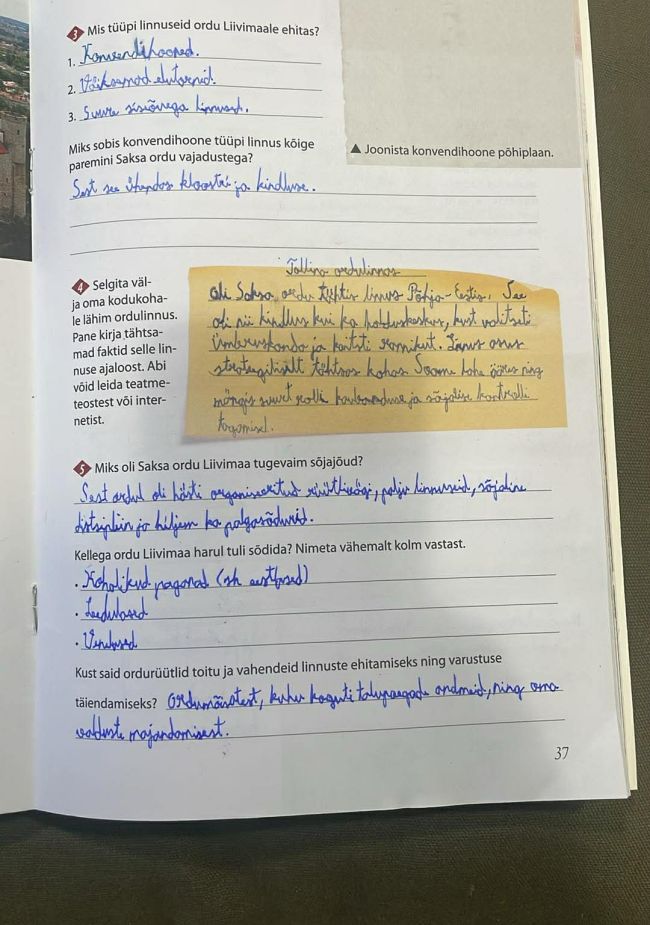 3 Mis tüüpi linnuseid ordu Liivimaale ehitas?
1. Konvendihooned.
2. Väiksemad elutornid.
3. Suure sisiõuega linnused.
Miks sobis konvendihoone tüüpi linnus kõige
paremini Saksa ordu vajadustega?
Sest see ühendas kloostri ja kindluse.
▲ Joonista konvendihoone põhiplaan.
4 Selgita väl-
ja oma kodukoha-
le lähim ordulinnus.
Pane kirja tähtsa-
mad faktid selle lin-
nuse ajaloost. Abi
võid leida teatme-
teostest või inter-
netist.
Tallinna ordulinnus
oli Saksa ordu tähtis linnus Põhja-Eestis. See
oli nii kindlus kui ka halduskeskus, kust valitseti
ümberuskonda ja kaitsti rannikut. Linnus asus
strateegiliselt tähtsas kohas Soome lahe ääres ning
mängis suurt rolli kaubanduse ja sõjalise kontrolli
tagamisel.
5 Miks oli Saksa ordu Liivimaa tugevaim sõjajõud?
Sest ordul oli hästi organiseeritud rüütlivägi, palju linnuseid, sõjaline
distsipliin ja hiljem ka palgasõdurid.
Kellega ordu Liivimaa harul tuli sõdida? Nimeta vähemalt kolm vastast.
• Kohalikud paganad (sh eestlased)
• Leedulased
• Venelased
Kust said ordurüütlid toitu ja vahendeid linnuste ehitamiseks ning varustuse
täiendamiseks? Ordumõisatest, kuhu koguti talupoegade andmeid, ning oma
valduste majandamisest.
37